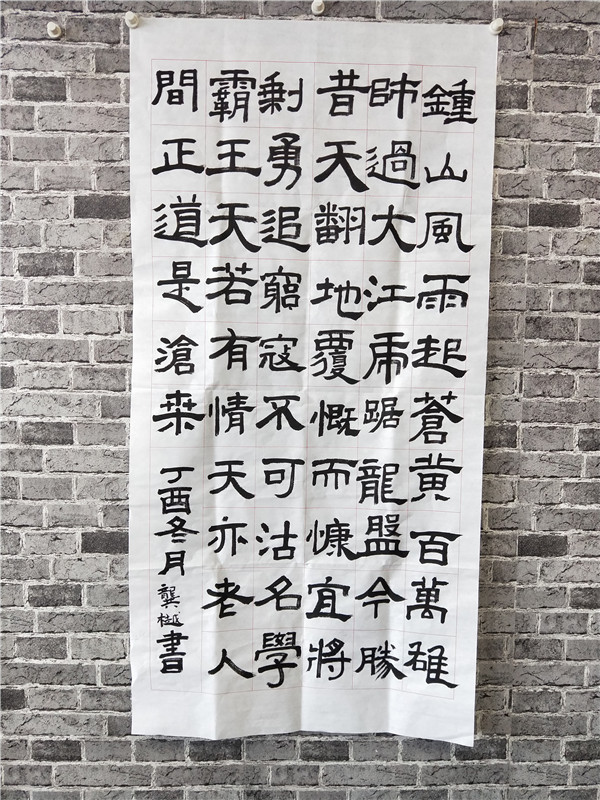 鍾山風雨起蒼黃百萬雄
師過大江虎踞龍盤今勝
昔天翻地覆慨而慷宜將
剩勇追窮寇不可沽名學
霸王天若有情天亦老人
間正道是滄桑丁酉冬月龔樾書